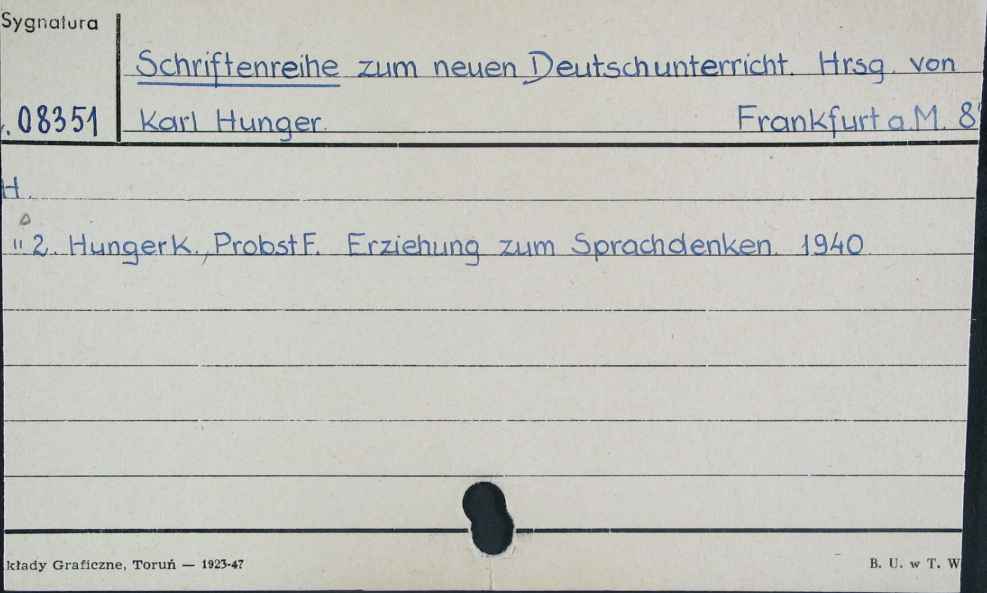 Sygnatura
Schriftenreihe zum neuen Deutschunterricht. Hrsg. von
08351 Karl Hunger. Frankfurt a.M. 8°
H.
" 2. Hunger K., Probst F. Erziehung zum Sprachdenken. 1940
kłady Graficzne, Toruń — 1923-47 B. U. w T. W